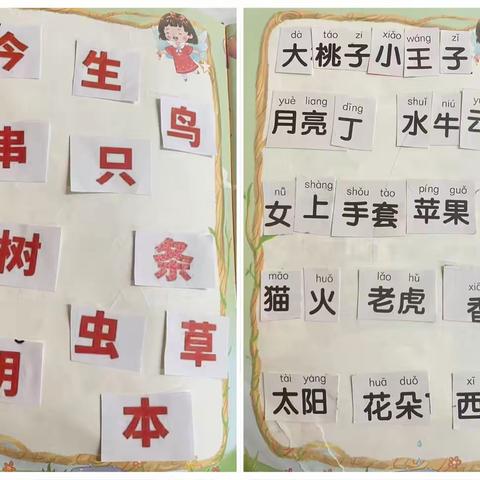 生
鸟
串 只
树 条
虫 草
本
dà táo zi xiǎo wáng zǐ
大桃子小王子
yuè liang dīng shuǐ niú
月亮丁 水牛云
nǚ shàng shǒu tào píng guǒ
女上手套苹果
māo huǒ lǎo hǔ
猫火 老虎 香
tài yáng huā duǒ xī
太阳 花朵 西